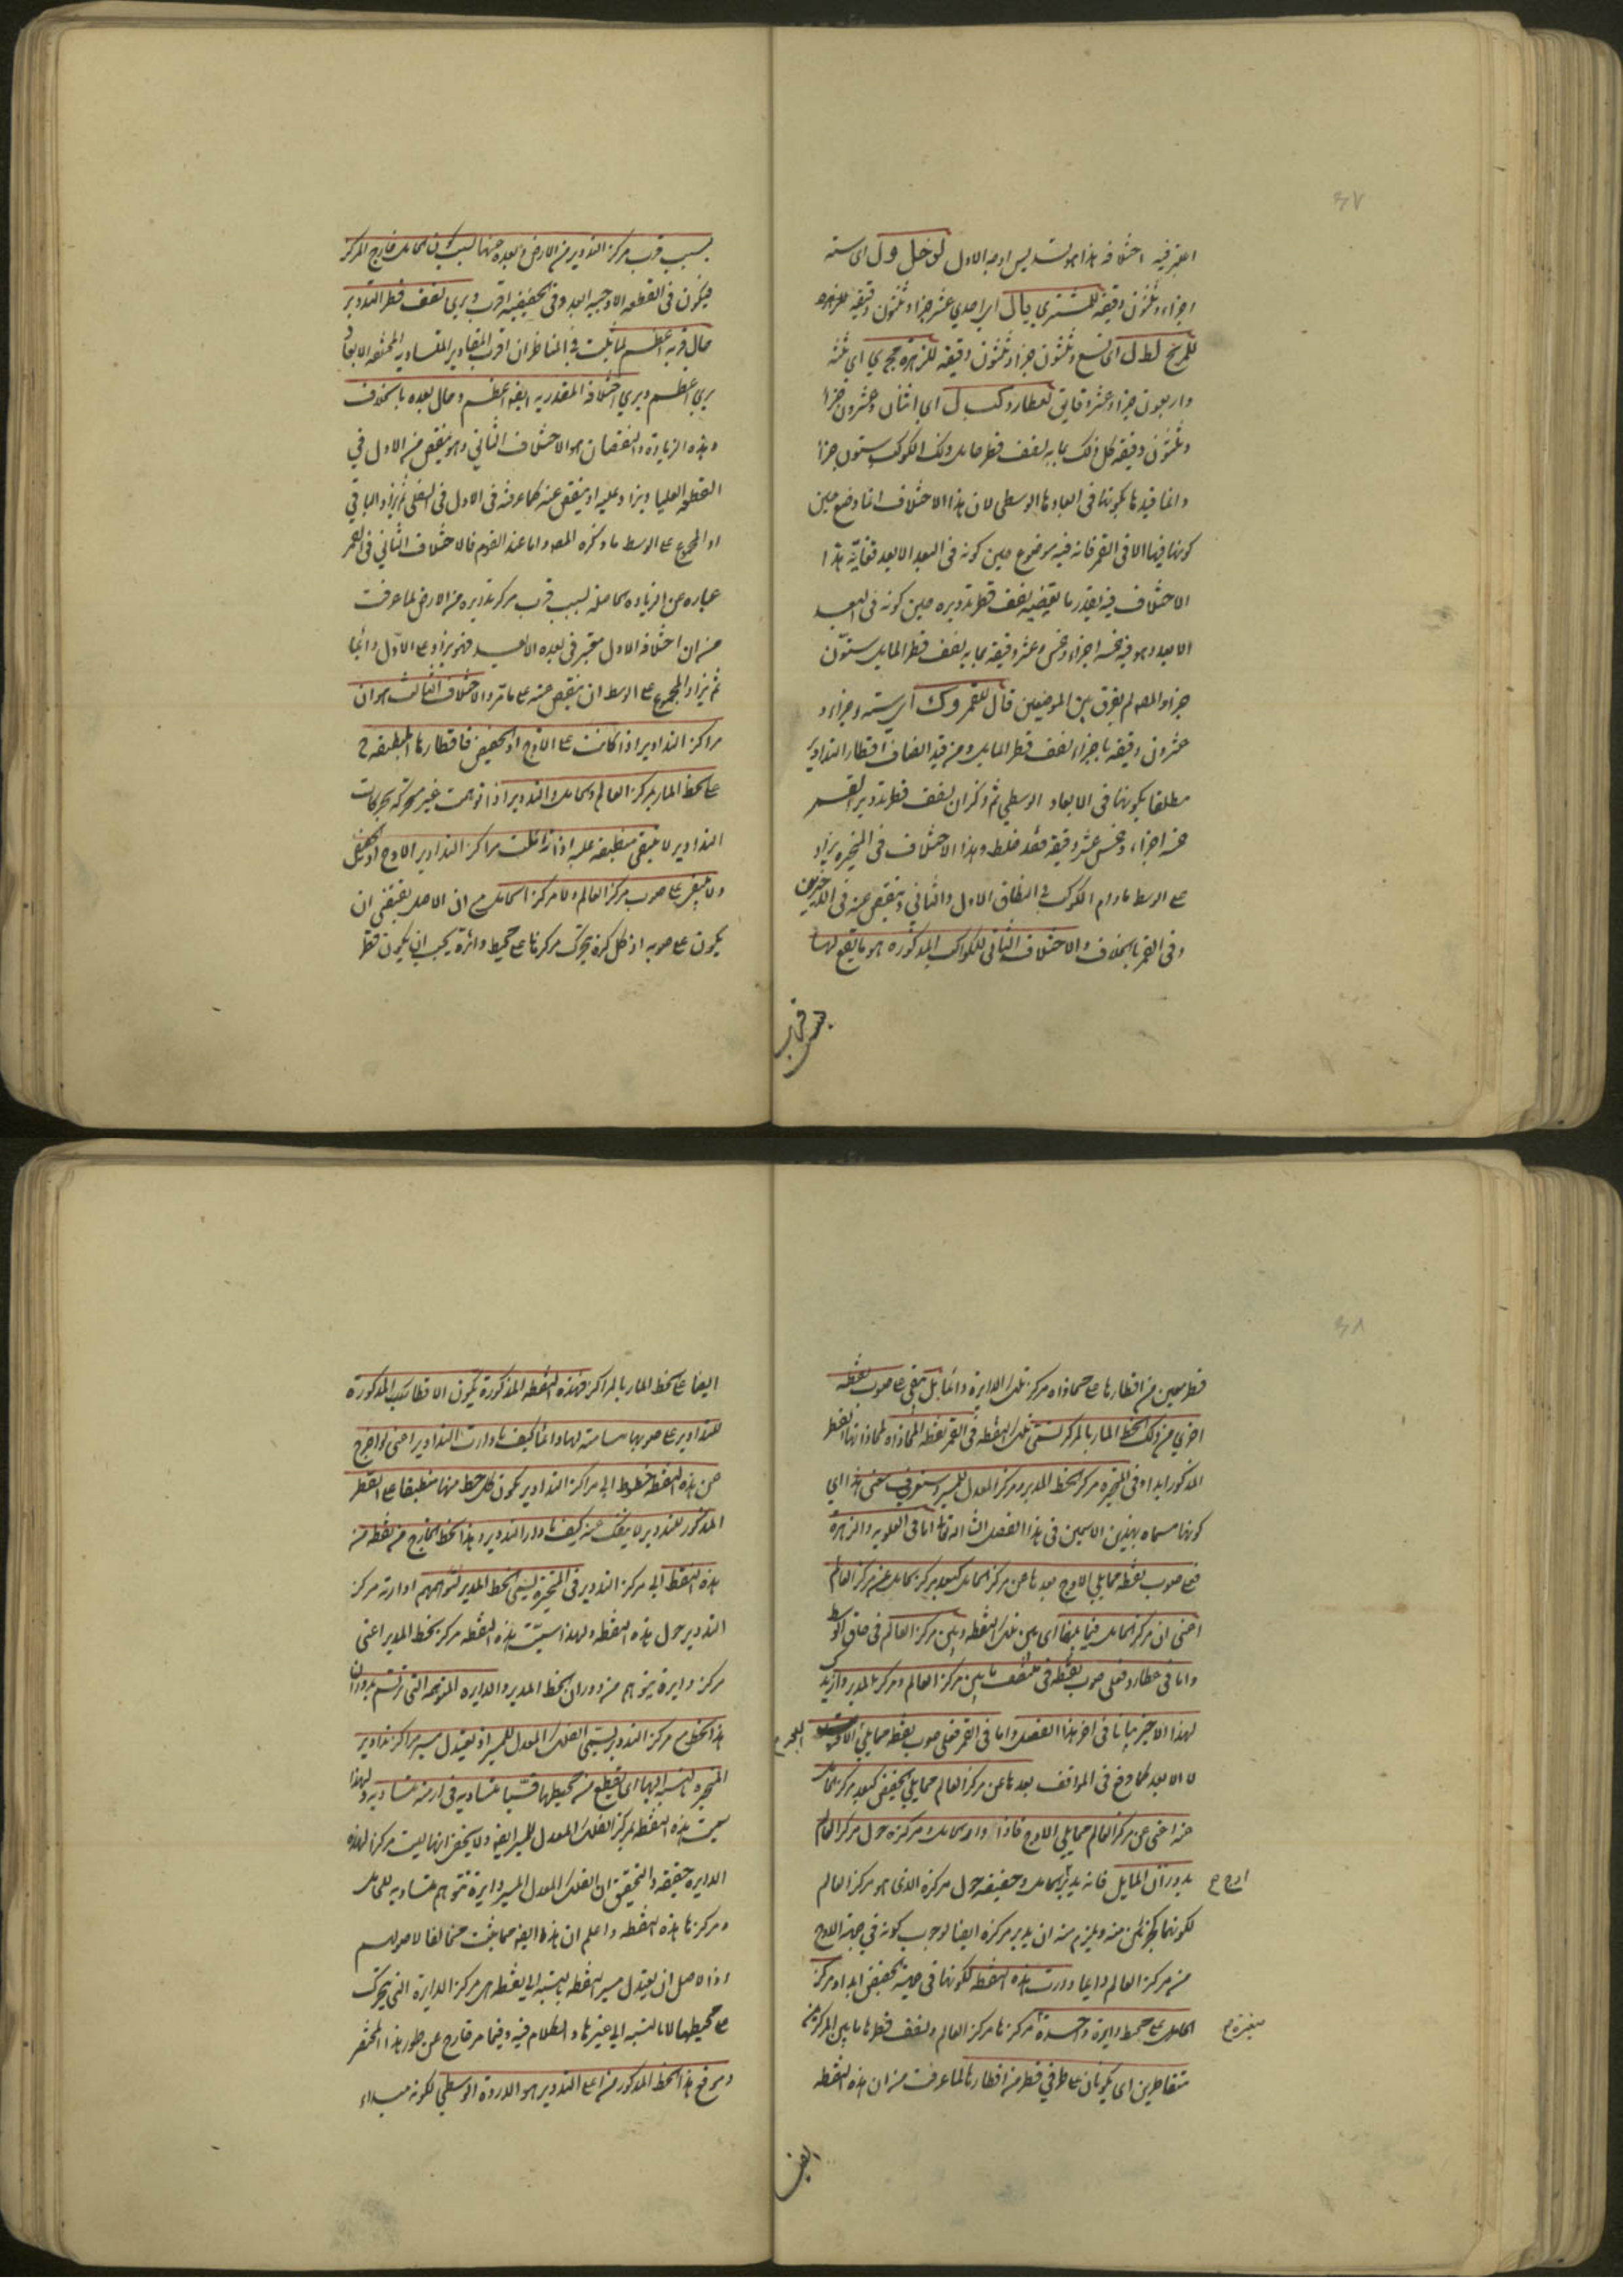 ٤٧
اعتبر فيه اختلافه هذا هو تسديس اوجه الاول لزحل ول اى ستة
اجزاء وثلثون دقيقة للمشتري يا ل اى احدي عشر جزءا وثلثون دقيقة
للمريخ لط ل اى تسع وثلثون جزءا وثلثون دقيقة للزهرة مج ي اى ثلثة
واربعون جزءا وعشر دقايق لعطارد كب ل اى اثنان وعشرون جزءا
وثلثون دقيقة كل ذلك بما به نصف قطر حامل ذلك الكوكب ستون جزءا
وانما قيدنا بكونها فى ابعادها الوسطى لان هذا الاختلاف انما وضع حين
كونها فيها الا فى القمر فانه فيه موضوع حين كونه فى البعد الابعد فغاية هذا
الاختلاف فيه بقدر ما يقتضيه نصف قطر تدويره حين كونه فى البعد
الابعد وهو فيه خمسة اجزاء وخمس عشر دقيقة بما به نصف قطر المايل ستون
جزءا والمصه لم يفرق بين الموضعين قال للقمر وك اى ستة اجزاء و
عشرون دقيقة باجزاء نصف قطر المايل ومن قيد انصاف اقطار التداوير
مطلقا بكونها فى الابعاد الوسطى ثم ذكر ان نصف قطر تدوير القمر
خمسة اجزاء وخمس عشر دقيقة فقد غلط وهذا الاختلاف فى المتحيرة يزاد
على الوسط مادام الكوكب فى النطاق الاول والثاني وينقص عنه فى الاخيرين
وفى القمر بالخلاف والاختلاف الثانى للكواكب المذكورة هو ما يقع لها
بسبب قرب
بسبب قرب مركز التدوير من الارض وبعده عنها لسبب كون الحامل خارج المركز
فيكون فى القطعة الاوجية ابعد وفى الحضيضية اقرب ويرى نصف قطر التدوير
حال قربه اعظم لما ثبت فى المناظر ان اقرب المقادير المتساوية المختلفة الابعاد
يرى اعظم ويرى اختلافه المقدر به ايضا اعظم وحال بعده بالخلاف
وهذه الزيادة والنقصان هو الاختلاف الثانى وهو ينقص من الاول فى
القطعة العليا ويزاد عليه او ينقص عنه كما عرفته فى الاول فى السفلى ثم يزاد الباقى
او المجموع على الوسط ما ذكره المصه واما عند القوم فالاختلاف الثانى فى القمر
عبارة عن الزيادة الحاصلة بسبب قرب مركز تدويره من الارض لما عرفت
من ان اختلافه الاول معتبر فى بعده الابعد فهو يزاد على الاول دائما
ثم يزاد المجموع على الوسط او ينقص عنه على ما مر والاختلاف الثالث هو ان
مراكز التداوير اذا كانت على الاوج او الحضيض فاقطارها المنطبقة ح
على الخط المار بمركز العالم والحامل والتدوير اذا توهمت غير متحركة بحركات
التداوير لا تبقى منطبقة عليه اذا زايلت مراكز التداوير الاوج او الحضيض
ولا تبقى على صوب مركز العالم ولا مركز الحامل مع ان الاصل يقتضى ان
يكون على صوبه اذ كل كرة يتحرك مركزها على محيط دائرة يجب ان يكون قطر
٤٨
قطر معين من اقطارها على محاذاة مركز تلك الدايرة دائما بل تبقى على صوب نقطة
اخرى من ذلك الخط المار بالمركز تسمى تلك النقطة فى القمر نقطة المحاذاة لمحاذاتها القطر
المذكور ابدا وفى المتحيرة مركز الخط المدير ومركز المعدل للمسير ستعرف معنى هذا اى
كونها مسماه بهذين الاسمين فى هذا الفصل ان شاء الله تعالى اما فى العلوية والزهرة
فعلى صوب نقطة مما يلى الاوج بعدها عن مركز الحامل كبعد مركز الحامل عن مركز العالم
اعنى ان مركز الحامل فيما بينها اى بين تلك النقطة وبين مركز العالم فى حاق الوسط
واما فى عطارد فعلى صوب نقطة فى منتصف ما بين مركز العالم ومركز المدير وازيد
لهذا الاخير بيانا فى اخر هذا الفصل واما فى القمر فعلى صوب نقطة مما يلى الاقرب
لا الابعد كما وقع فى المواقف بعدها عن مركز العالم مما يلى الحضيض كبعد مركز الحامل
عنه اعنى عن مركز العالم مما يلى الاوج فاذا ادار الحامل مركزه حول مركز العالم
بدوران المايل فانه يدير الحامل وحقيقة حول مركزه الذى هو مركز العالم
لكونهما كجزئين منه ويلزم منه ان يدير مركزه ايضا لوجوب كونه فى جهة الاوج
من مركز العالم دايما دارت هذه النقطة لكونها فى جهة الحضيض ابدا ومركز
الحامل على محيط دايرة واحدة مركزها مركز العالم ونصف قطرها ما بين المركزين
متقاطرين اى يكونان على طرفى قطر من اقطارها لما عرفت من ان هذه النقطة
ايضا
ايضا على الخط المار بالمراكز فهذه النقطة المذكورة تكون الاقطار المذكورة
للتداوير على صوبها مسامتة لها دائما كيف ما دارت التداوير اعنى لو اخرج
من هذه النقط خطوط الى مراكز التداوير يكون كل خط منها منطبقا على القطر
المذكور للتدوير لا ينفك عنه كيف ما دار التدوير وهذا الخط الخارج من نقطة من
هذه النقط الى مركز التدوير فى المتحيرة يسمى الخط المدير لتوهمهم ادارته مركز
التدوير حول هذه النقطة ولهذا سميت هذه النقطة مركز الخط المدير اعنى
مركز دايرة يتوهم من دوران الخط المدير والدايرة المتوهمة التى ترتسم بدوران
هذا الخط مع مركز التدوير يسمى الفلك المعدل للمسير اذ يعتدل مسير مراكز تداوير
المتحيرة بالنسبة اليها اى يقطع من محيطها قسيا متساوية فى ازمنة متساوية ولهذا
سميت هذه النقط بمركز الفلك المعدل للمسير ايضا ولا يخفى انها ليست مركزا لهذه
الدايرة حقيقة والتحقيق ان الفلك المعدل للمسير دايرة تتوهم مساوية للحامل
ومركزها هذه النقطة واعلم ان هذا ايضا مما يثبت مخالفا لاصولهم
اذ الاصل ان يعتدل مسير النقطة بالنسبة الى نقطة هى مركز الدايرة التى يتحرك
على محيطها لا بالنسبة الى غيرها والكلام فيه وفيما مر خارج عن طور هذا المختصر
وموقع هذا الخط المذكور من اعلى التدوير هو الذروة الوسطى لكونه مبداء